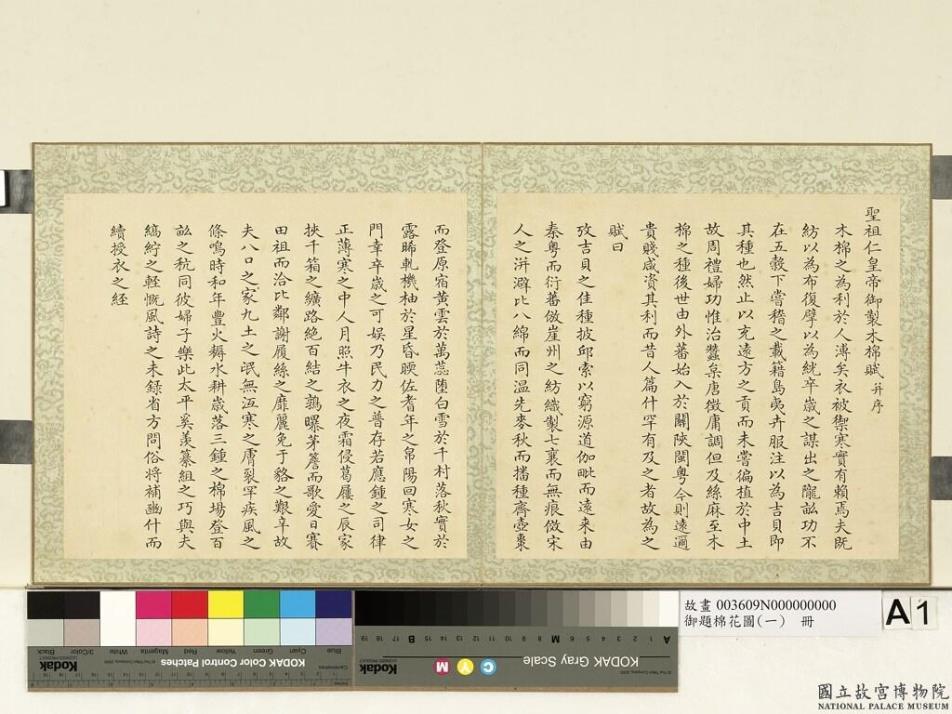 聖祖仁皇帝御製木棉賦 并序
木棉之為利於人溥矣衣被禦寒實有賴焉夫既
紡以為布復擘以為絖卒歲之謀出之隴畝功不
在五穀下嘗稽之載籍島夷卉服注以為吉貝即
其種也然止以充遠方之貢而未嘗徧植於中土
故周禮婦功惟治蠶枲唐徵庸調但及絲麻至木
棉之種後世由外蕃始入於關陝閩粵今則遠邇
貴賤咸資其利而昔人篇什罕有及之者故為之
賦曰
攷吉貝之佳種披邱索以窮源道伽毗而遠来由
秦粵而衍蕃倣崖州之紡織製七襄而無痕倣宋
人之洴澼比八綿而同温先麥秋而播種齊壺棗
而登原宿黃雲於萬蕊墮白雪於千村落秋實於
露晞軋機杼於星昏睽佐耆年之帛陽回寒女之
門幸卒歲之可娛乃民力之普存若應鍾之司律
正薄寒之中人月照牛衣之夜霜侵葛屨之辰家
挾千箱之纊路絶百結之鶉曝茅簷而歌愛日賽
田祖而洽比鄰謝履絲之靡麗免于貉之艱辛故
夫八口之家九土之氓無沍寒之膚裂罕疾風之
條鳴時和年豐火耨水耕歲落三鍾之棉場登百
畝之秔同彼婦子樂此太平奚羨纂組之巧與夫
縞紵之輕慨風詩之未録省方問俗将補豳什而
續授衣之經
故畫 003609N000000000
御題棉花圖(一) 冊
A1
KODAK Color Control Patches
Kodak
KODAK Gray Scale
Kodak
C Y M
Blue
Cyan
Green
Yellow
Red
Magenta
White
3/Color
Black
國立故宮博物院
NATIONAL PALACE MUSEUM